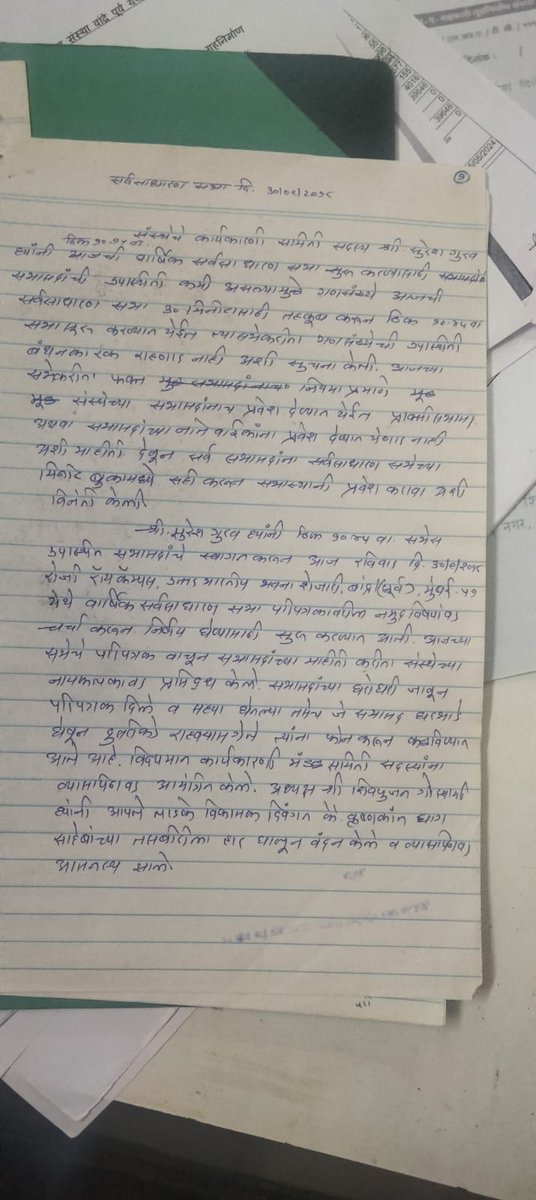 संस्था वांद्रे पूर्व
गृहनिर्माण
दिनांक :
39646
39646
4016
155
05/2024
नगर,
१
सर्वसाधारण सभा दि. 30/0९/२०१८
संस्थेचे कार्यकारणी समिती सदस्य श्री सुरेश गुरव
ठिक १०.१५ वा.
ह्यांनी आजची वार्षिक सर्वसाधारण सभा सुरू करण्यासाठी सभासदांची
सभासदांची उपस्थिती कमी असल्यामुळे गणसंख्ये आजची
सर्वसाधारण सभा 30 मिनिटासाठी तहकूब करून ठिक १०.४५ वा
सभा सुरू करण्यात येईल त्या सभेकरीता गणसंख्येची उपस्थिती
बंधनकारक राहणार नाही अशी सुचना केली. आजच्या
सभेकरीता फक्त नियमा प्रमाणे मूळ
संस्थेच्या सभासदांनाच प्रवेश देण्यात येईल
अथवा सभासदांच्या नातेवाईकांना प्रवेश देण्यात येणार नाही
अशी माहीती देवून सर्व सभासदांना सर्वसाधारण सभेच्या
मिनीट बुकामध्ये सही करून सभास्थानी प्रवेश करावा अशी
विनंती केली.
श्री. सुरेश गुरव ह्यांनी ठिक १०.४५ वा. सभेस
उपस्थित सभासदांचे स्वागत करून आज रविवार दि. 30/९/२०१८
रोजी रॉय कॅम्पस, उत्तर भारतीय भवना शेजारी, बांद्रा (पूर्व), मुंबई - ५१
येथे वार्षिक सर्वसाधारण सभा परिपत्रकावरील नमुद विषयांवर
चर्चा करून निर्णय घेण्यासाठी सुरू करण्यात आली. आजच्या
सभेचे परिपत्रक वाचून सभासदांच्या माहीती करीता संस्थेच्या
नामफलकावर प्रसिद्ध केले. सभासदांच्या घरोघरी जावून
परिपत्रक दिले व सह्या घेतल्या तसेच जे सभासद घरभाडे
घेवून इतरत्र राहवयास गेले त्यांना फोन करून कळविण्यात
आले आहे. विद्यमान कार्यकारणी समिती सदस्यांना
व्यासपिठावर आमंत्रित केले. अध्यक्ष श्री शिवपुजन गोस्वामी
ह्यांनी आपले लाडके विकासक दिवंगत कै. कृष्णकांत घाग
साहेबांच्या तसबीरीला हार घालून वंदन केले व व्यासपिठावर
आसनस्थ झाले.